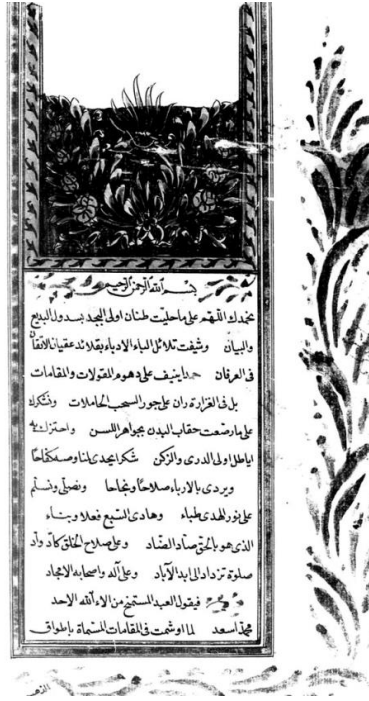 بسم الله الرحمن الرحيم
نحمدك اللهم على ما حليت اولى المجد البديع
والبيان وشيفت الادباء بقلائد عقيان الاتقان
فى العرفان حمدا ينيف على دهوم المقولات والمقامات
بل فى الغزارة ران على جور السحب الحاملات ونشكرك
على ما رصعت حقاب البدن بجواهر اللسن
اولى الدرى والزكن شكرا يجدى لنا وصفكفاحا
ويردى بالارباء صلاحا ونجاحا ونصلى ونسلم
على نور الهدى طباء وهادى الشبع فعلا وبناء
الذى هو بالحق صاد الضاد وعلى صلاح الخلق كاد واد
صلوة تزداد الى ابد الآباد وعلى آله واصحابه الامجاد
فيقول العبد المستميح من الاء الله الاحد
محمد اسعد لما اوشمت فى المقامات المسماة باطواق